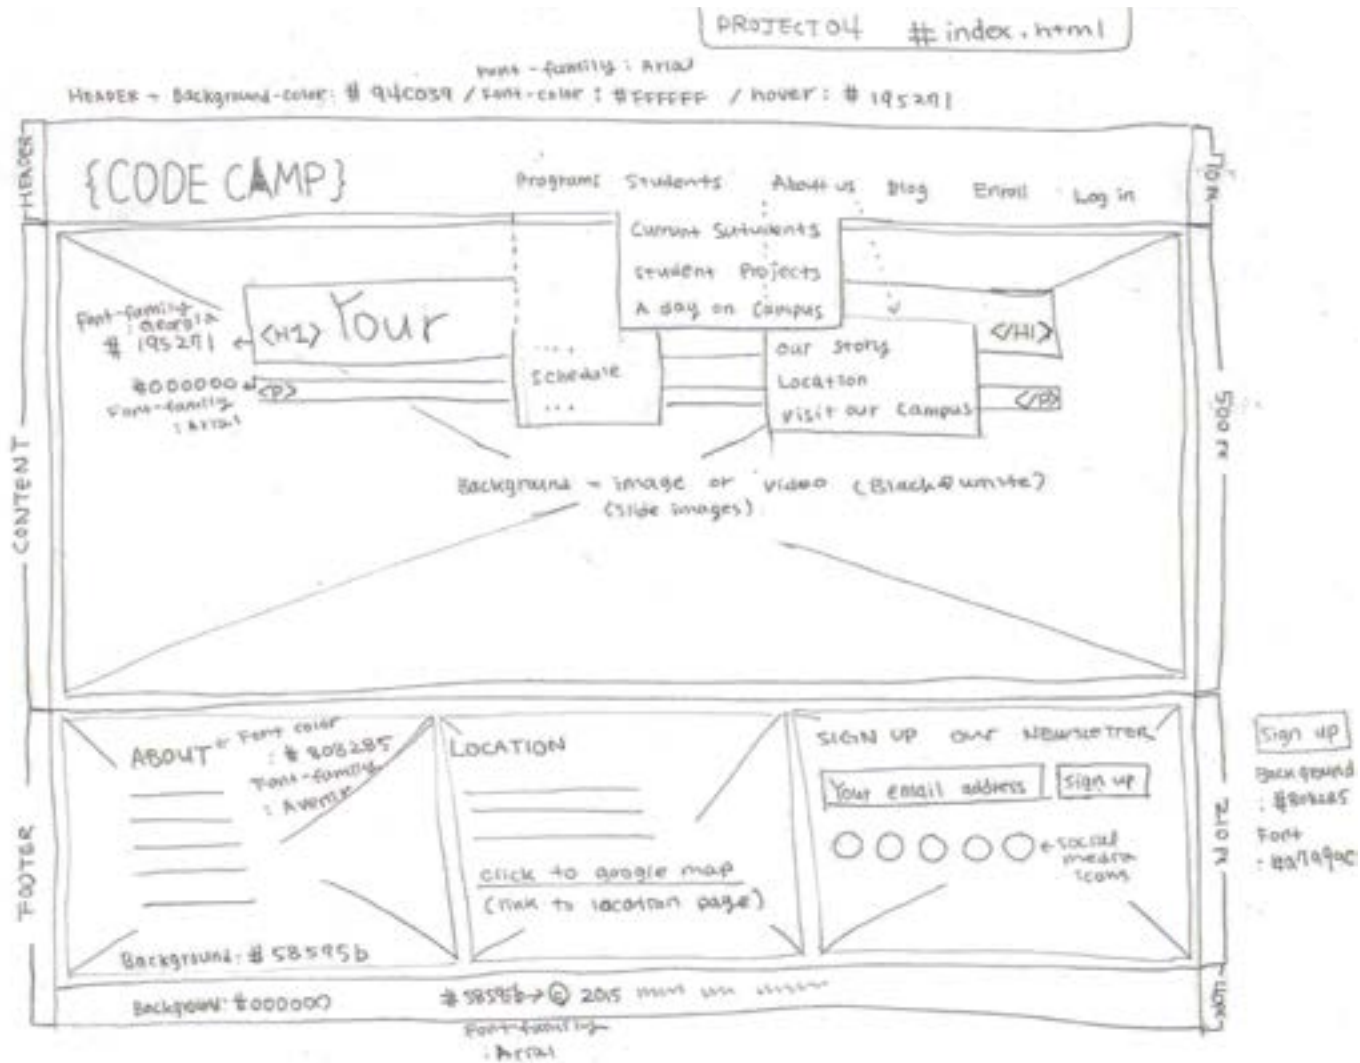 PROJECT04 # index.html
Font-family: Arial
HEADER - Background-color: # 94C039 / Font-color: #FFFFFF / hover: # 195271
HEADER
{CODE CAMP}
Programs Students About us Blog Enroll Log in
Currunt Sutudents
Student Projects
A day on Campus
Font-family
: Georgia
# 195271
<H1> Your
</H1>
....
Schedule
...
our story
Location
Visit our Campus
#000000
<P>
</P>
Font-family
: Arial
Background - image or video (Black&white)
(slide images)
CONTENT
ABOUT
Font color
: # 808285
Font-family
: Avenir
Background: # 58595b
LOCATION
click to google map
(link to location page)
SIGN UP OUR NEWSLETTER
Your email address
sign up
social
media
icons
FOOTER
Sign up
Background
: #808285
Font
Background: #000000
#58595b → © 2015
Font-family
: Arial